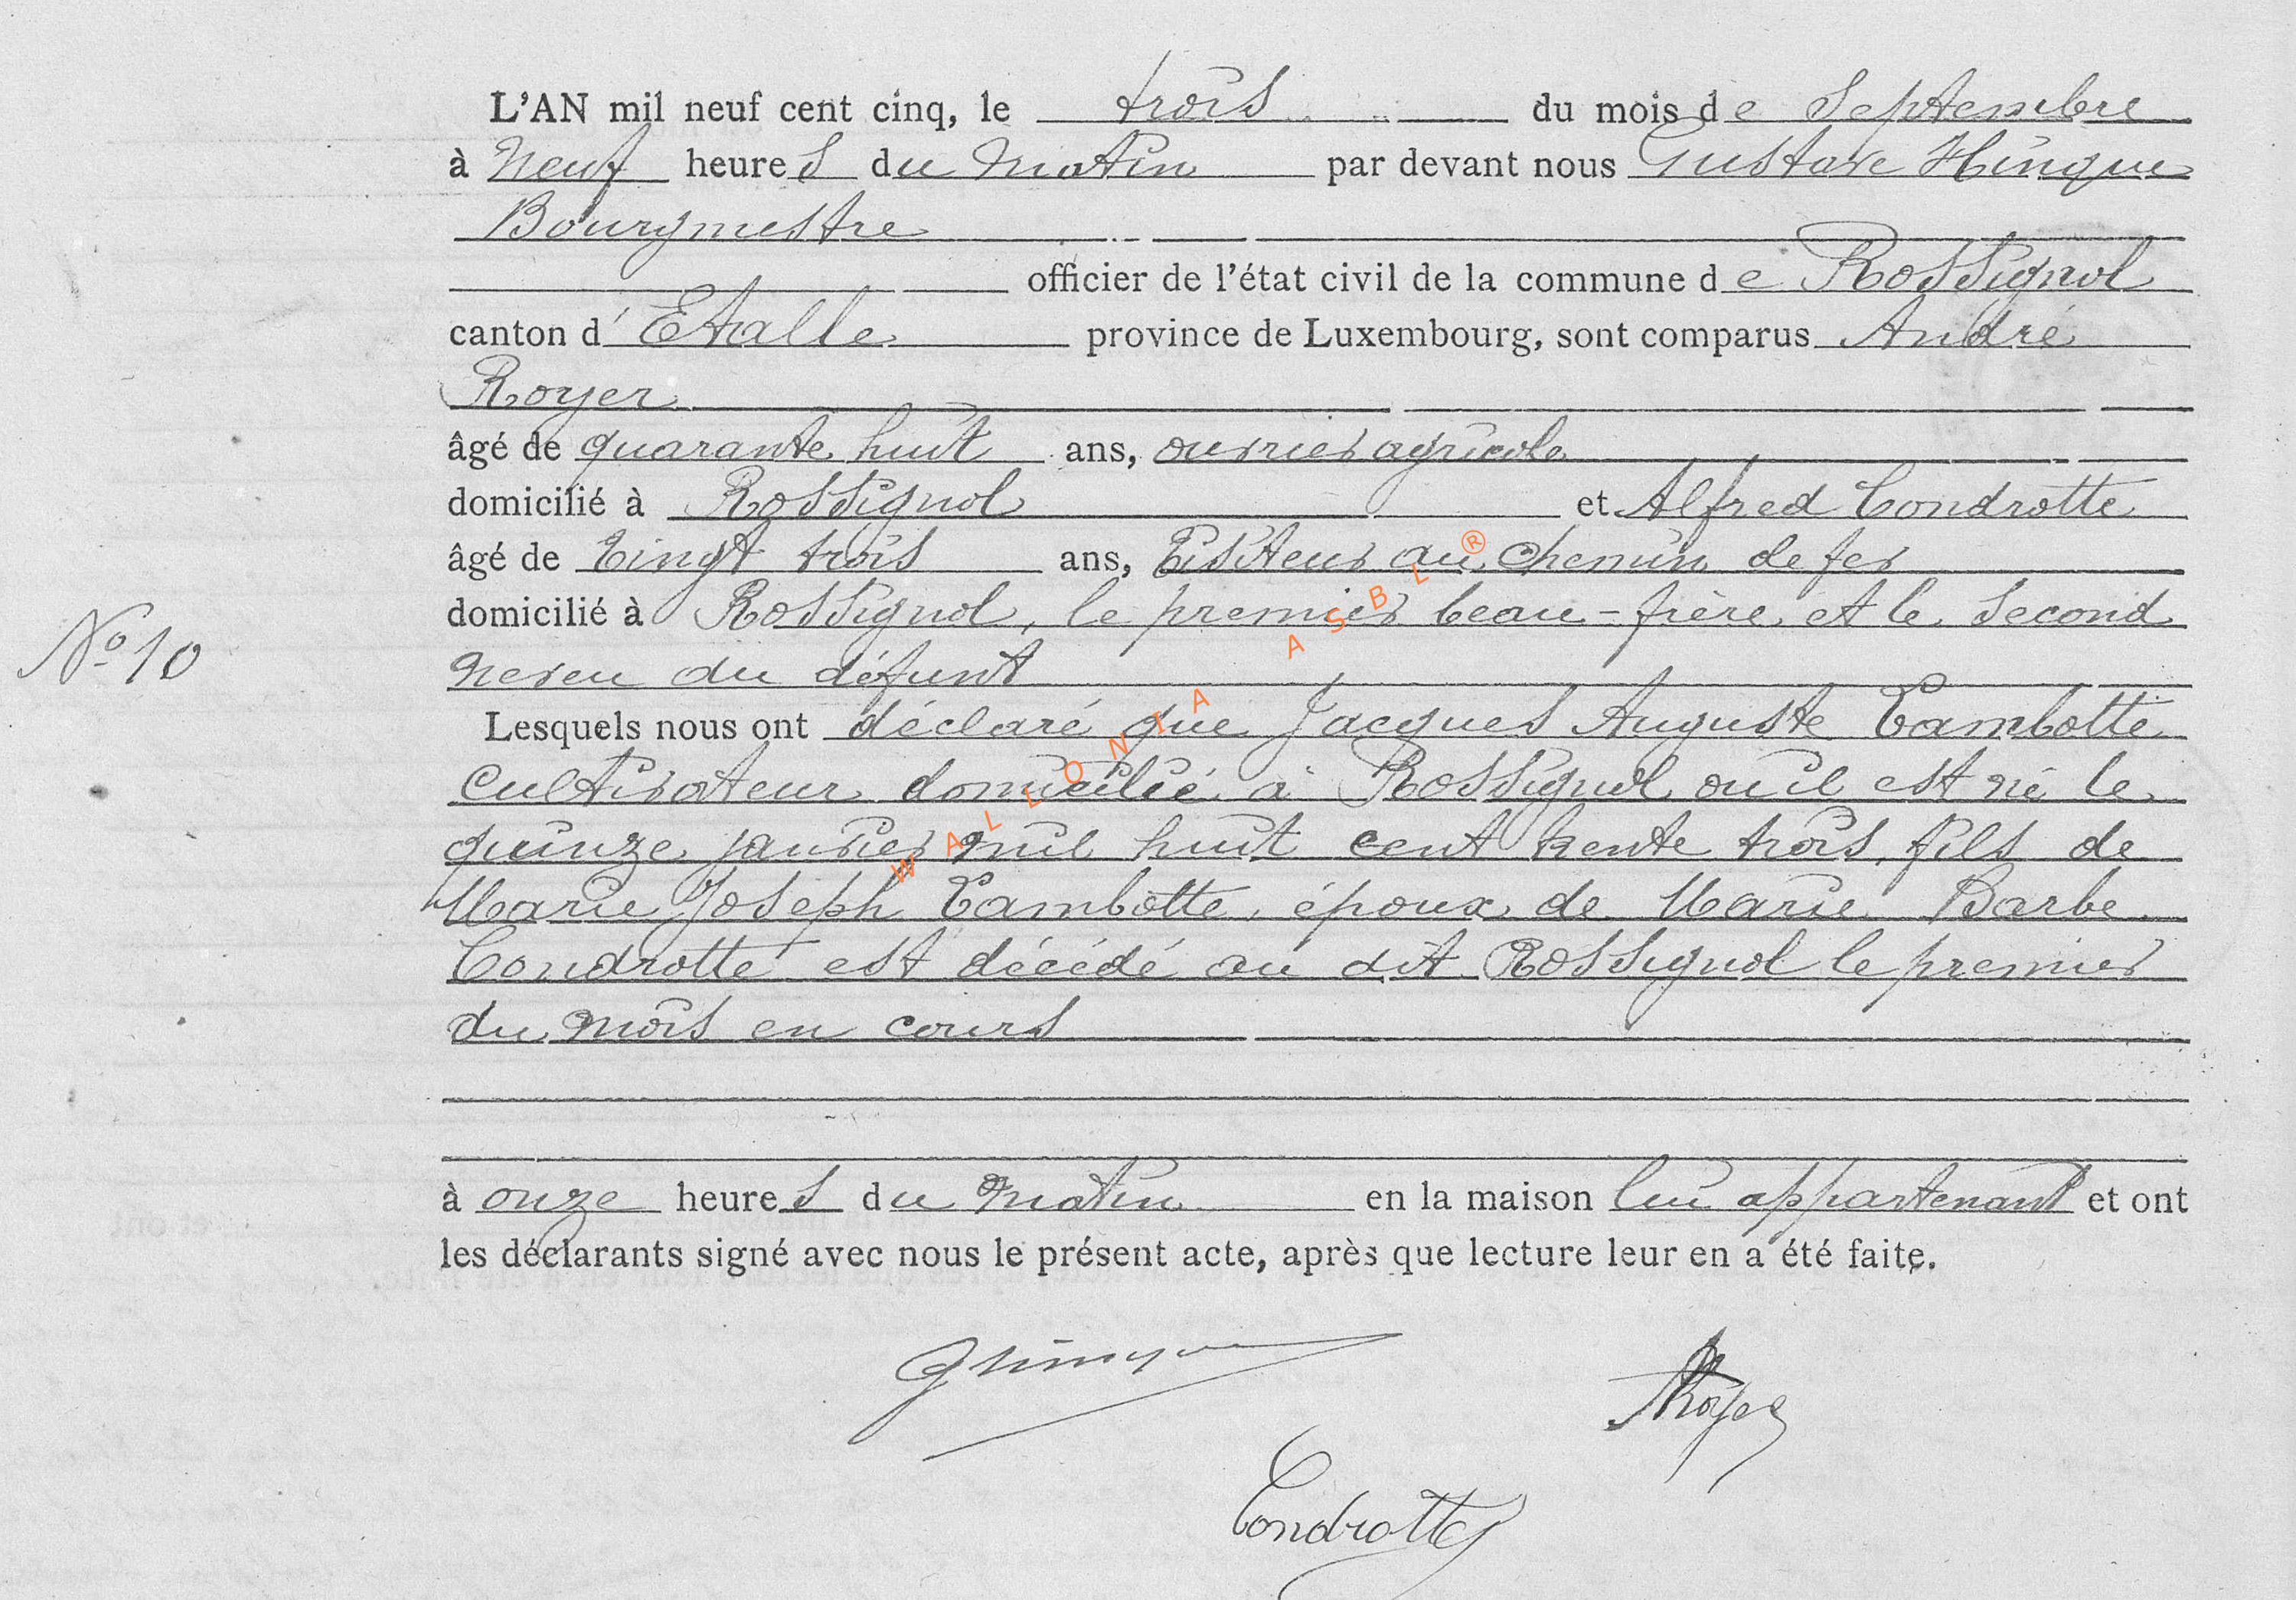 L'AN mil neuf cent cinq, le trois du mois de Septembre
à Neuf heures du Matin par devant nous Gustave Hinque
Bourgmestre
officier de l'état civil de la commune de Rossignol
canton d'Etalle province de Luxembourg, sont comparus André
Royer
âgé de quarante huit ans, ouvrier agricole
domicilié à Rossignol et Alfred Condrotte
âgé de Vingt trois ans, Visiteur au chemin de fer
domicilié à Rossignol, le premier beau-frère et le second
N° 10
neveu du défunt
Lesquels nous ont déclaré que Jacques Auguste Lambotte
cultivateur domicilié à Rossignol où il est né le
quinze janvier mil huit cent trente trois, fils de
Marie Joseph Lambotte, époux de Marie Barbe
Condrotte est décédé au dit Rossignol le premier
du mois en cours
à onze heures du matin en la maison lui appartenant et ont
les déclarants signé avec nous le présent acte, après que lecture leur en a été faite.
GHinque
ARoyer
Condrotte
WALLONIA ASBL ®